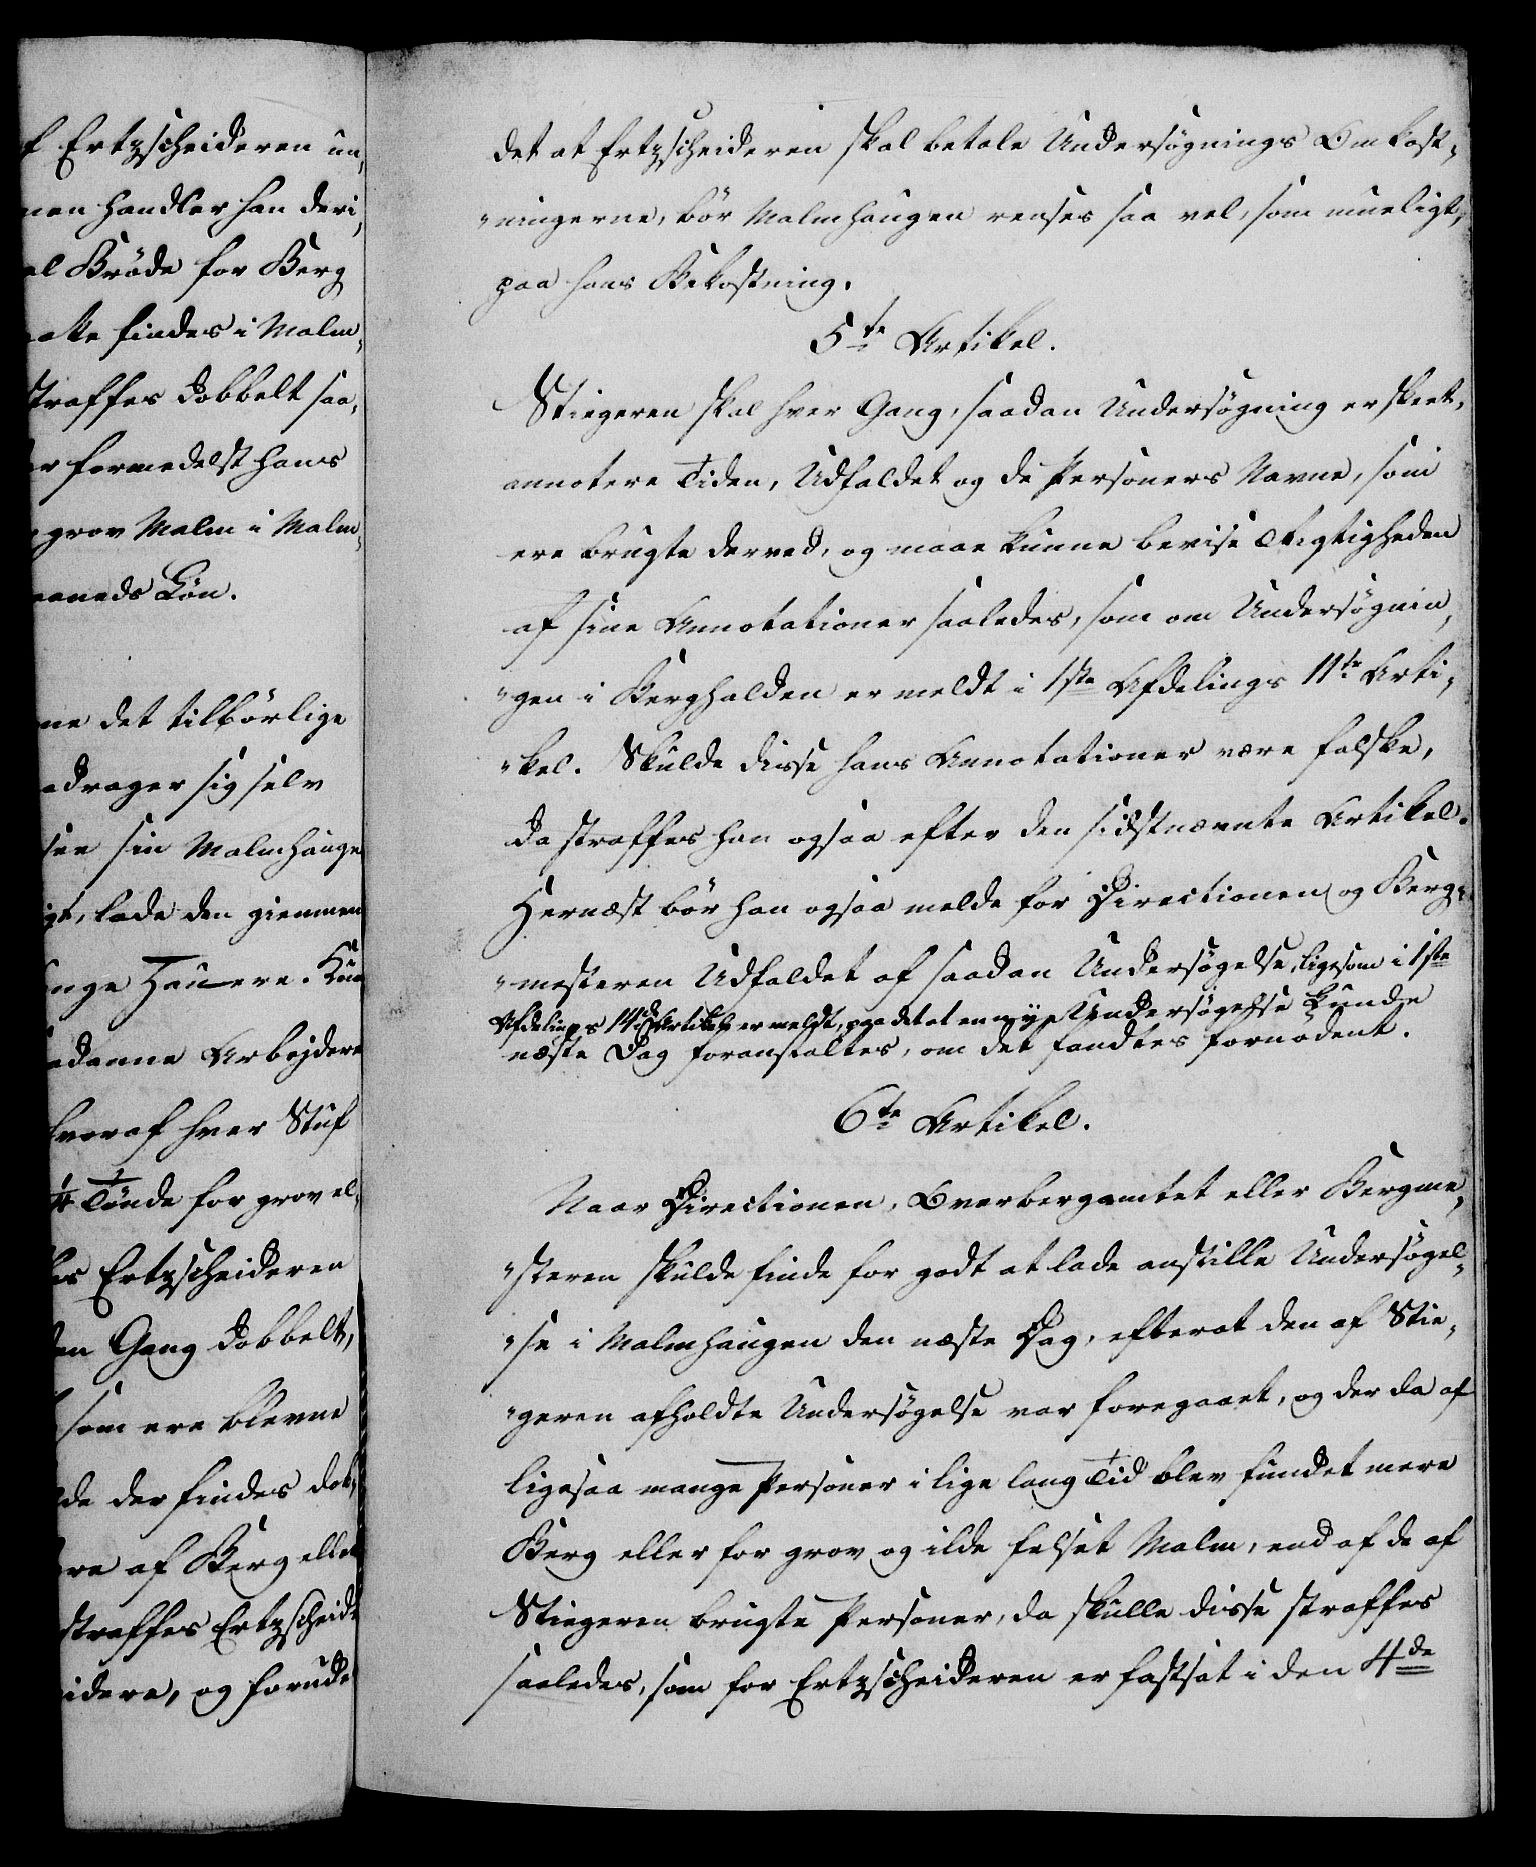 f Ertzscheideren un,
men handler han deri,
el Brøde for Berg
akke findes i Malm,
straffes dobbelt saa,
er formedelst hans
grov Malm i Malm,
aaneds Løn.
ne det tilbørlige
adrager sig selv
see sin Malmhauge
igt, lade den giennem
nge Hauere. Kun
adanne Arbejdere
hvoraf hver Stuf
1/4 Tønde for grov el,
des Ertzscheideren
den Gang dobbelt,
som ere blevne
de der findes dob,
re af Berg eller
straffes Ertzscheide
idere, og forud
det at Ertzscheideren skal betale Undersøgnings Omkost,
"ningerne, bør Malmhaugen renses saa vel, som mueligt,
paa hans Bekostning.
5te Artikel.
Stiegeren skal hver Gang, saadan Undersøgning er skeet,
annotere Tiden, Udfaldet og de Personers Navne, som
ere brugte derved, og maae kunne bevise Rigtigheden
af sine Annotationer saaledes, som om Undersøgnin,
"gen i Berghalden er meldt i 1ste Afdelings 11te Arti,
"kel. Skulde disse hans Annotationer være falske,
da straffes han ogsaa efter den sidstnævnte Artikel.
Hernæst bør han ogsaa melde for Directionen og Berg,
"mesteren Udfaldet af saadan Undersøgelse, ligesom i 1ste
Afdelings 11te Artikel er meldt, paa det at en nye Undersøgelse kunde
næste Dag foranstaltes, om det fandtes fornødent.
6te Artikel.
Naar Directionen, Overbergamtet eller Bergme,
"steren skulde finde for godt at lade anstille Undersøgel,
"se i Malmhaugen den næste Dag, efterat den af Stie,
"geren afholdte Undersøgelse var foregaaet, og der da af
ligesaa mange Personer i lige lang Tid blev fundet mere
Berg eller for grov og ilde felset Malm, end af de af
Stiegeren brugte Personer, da skulle disse straffes
saaledes, som for Ertzscheideren er fastsat i den 4de